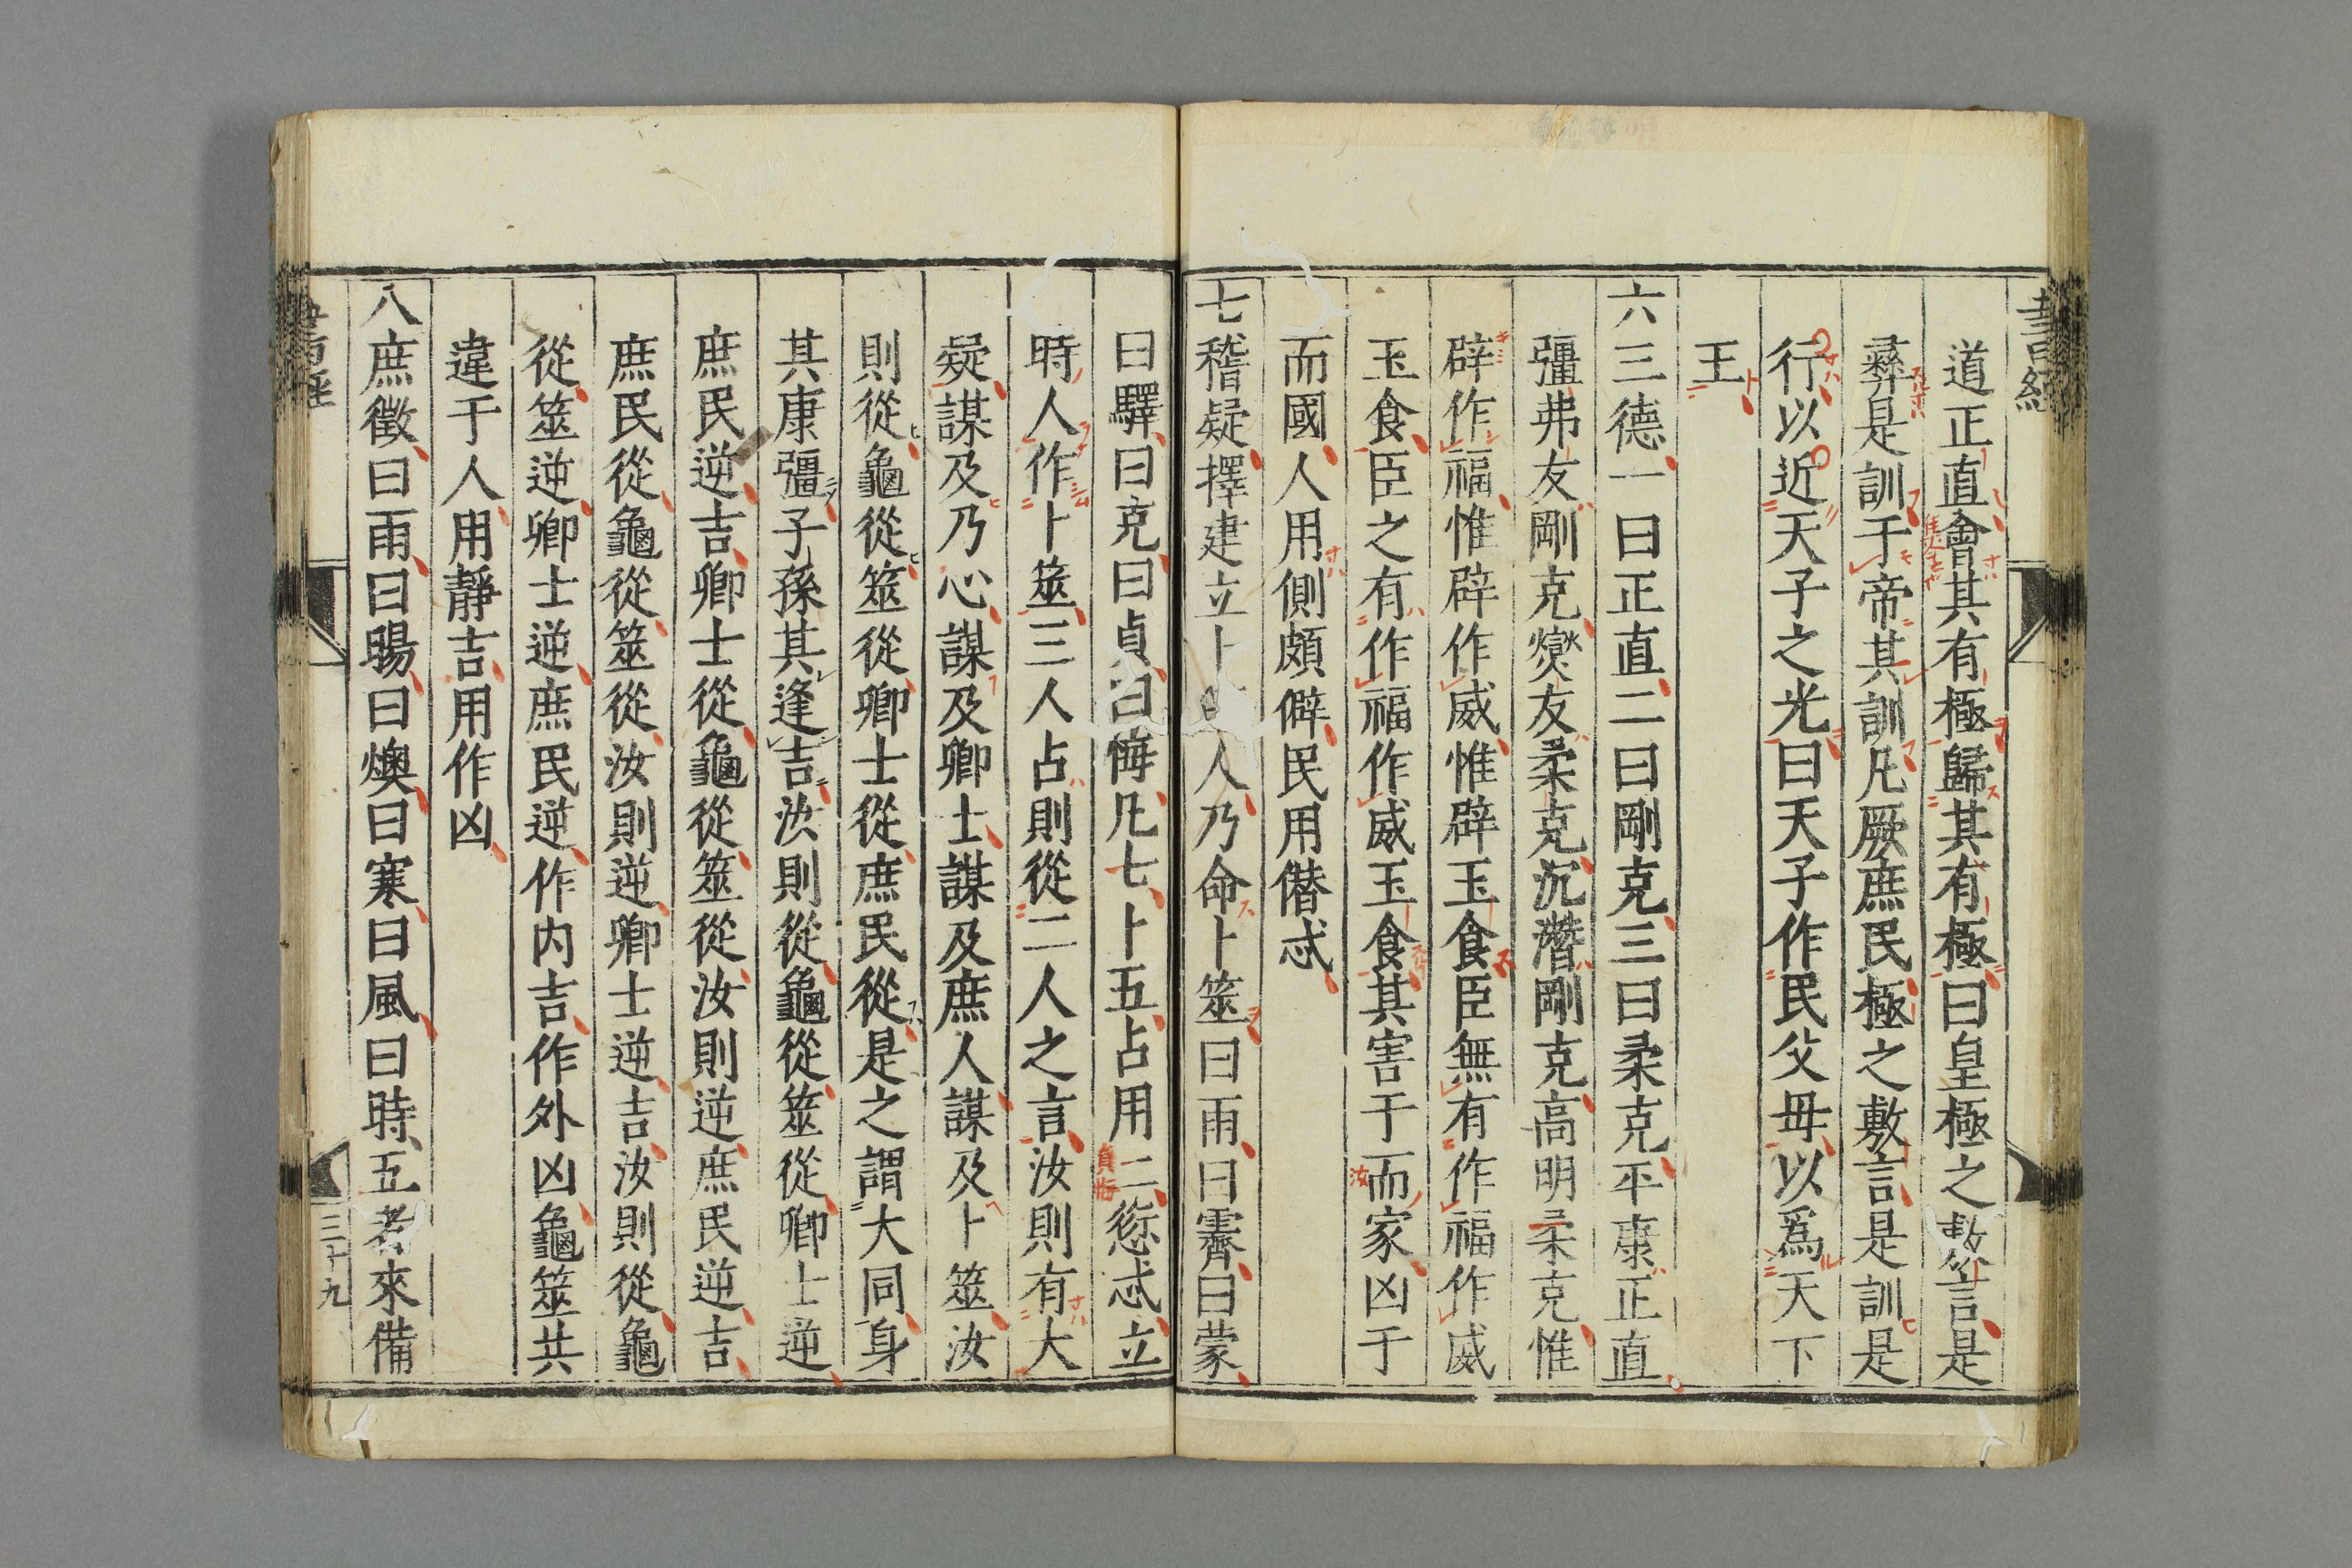 書經
道正直會其有極歸其有極曰皇極之敷言是
彞是訓于帝其訓凡厥庶民極之敷言是訓是
行以近天子之光曰天子作民父母以爲天下
王
六三德一曰正直二曰剛克三曰柔克平康正直
彊弗友剛克燮友柔克沉潛剛克高明柔克惟
辟作福惟辟作威惟辟玉食臣無有作福作威
玉食臣之有作福作威玉食其害于而家凶于
而國人用側頗僻民用僣忒
七稽疑擇建立卜人乃命卜筮曰雨曰霽曰蒙
曰驛曰克曰貞曰悔凡七卜五占用二愆忒立
時人作卜筮三人占則從二人之言汝則有大
疑謀及乃心謀及卿士謀及庶人謀及卜筮汝
則從龜從筮從卿士從庶民從是之謂大同身
其康彊子孫其逢吉汝則從龜從筮從卿士逆
庶民逆吉卿士從龜從筮從汝則逆庶民逆吉
庶民從龜從筮從汝則逆卿士逆吉汝則從龜
從筮逆卿士逆庶民逆作内吉作外凶龜筮共
違于人用靜吉用作凶
八庶徵曰雨曰暘曰燠曰寒曰風曰時五者來備
三十九